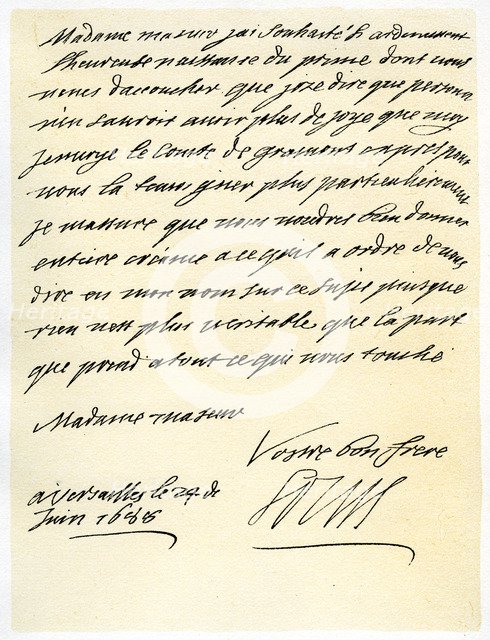 Madame ma seur jai souhaité si ardemment
lheureuse naissance du prince dont vous
venes daccoucher que joze dire que personne
nen sauroit avoir plus de joye que moy
Jenvoye le Comte de gramont exprès pour
vous la temoigner plus particulièrement
Je massure que vous voudres bien donner
entiere créance a ce quil a ordre de vous
dire en mon nom sur ce sujet puisque
rien nest plus veritable que la part
que prend a tout ce qui vous touche
Madame ma seur
Vostre bon frere
Louis
a versailles le 24 de
Juin 1688
Heritage